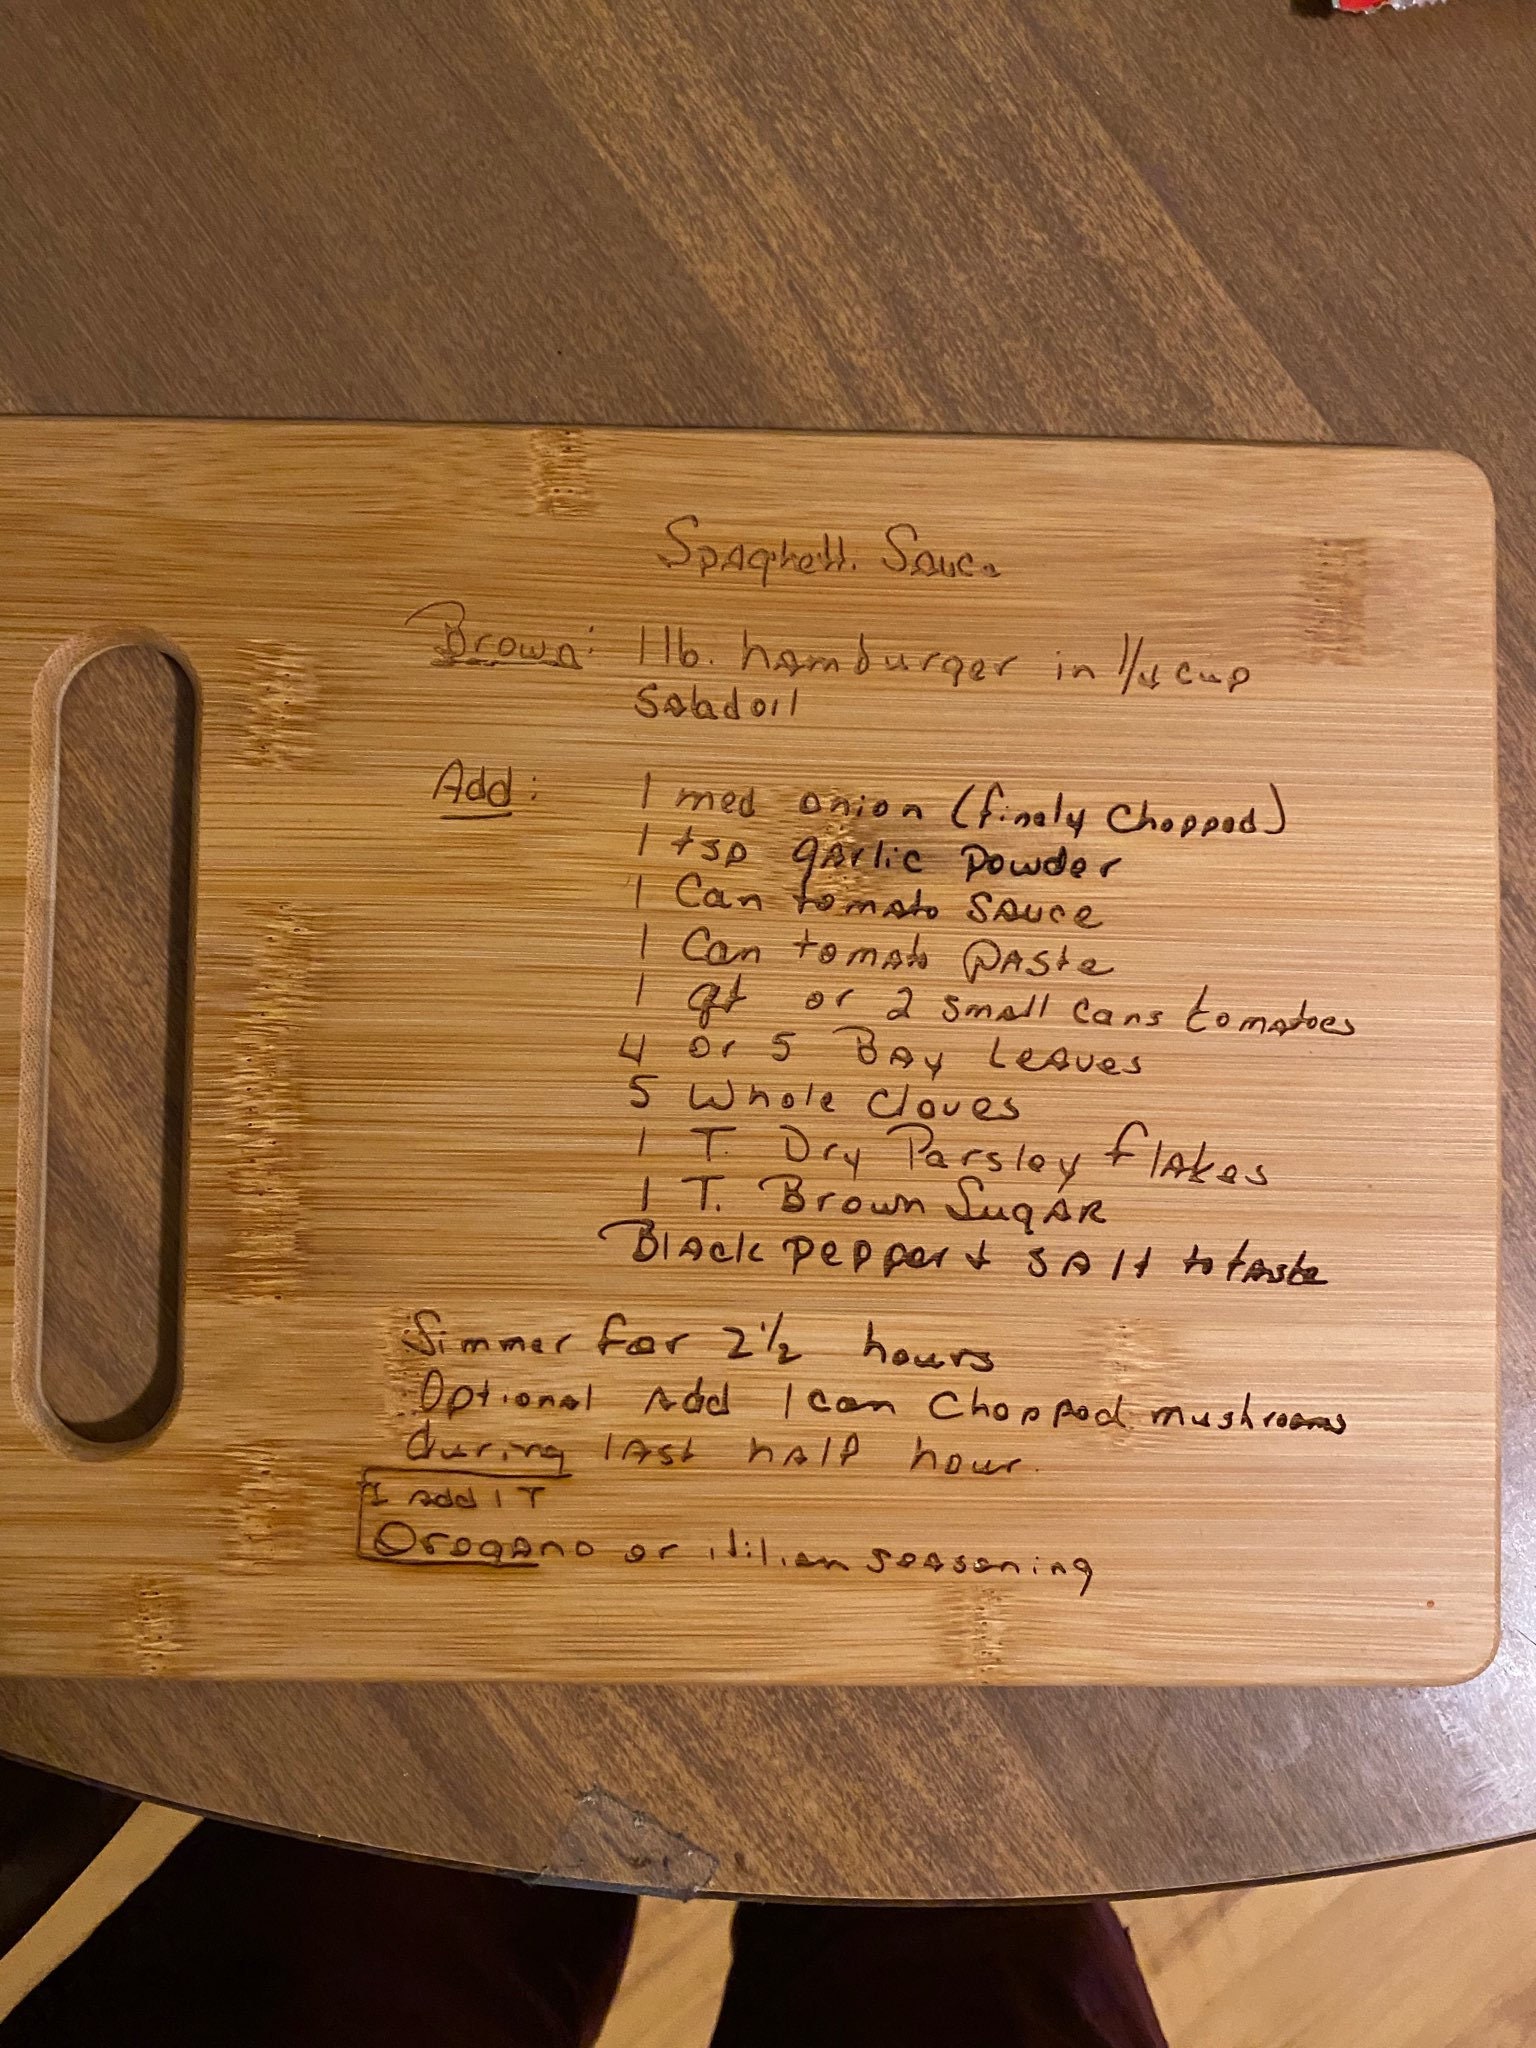 Spaghetti Sauce
Brown: 1 lb. hamburger in 1/4 cup
Salad oil
Add: 1 med onion (finely chopped)
1 tsp garlic powder
1 Can tomato sauce
1 Can tomato paste
1 qt or 2 small cans tomatoes
4 or 5 Bay Leaves
5 Whole Cloves
1 T. Dry Parsley flakes
1 T. Brown Sugar
Black pepper & salt to taste
Simmer for 2 1/2 hours
Optional Add 1 can Chopped mushrooms
during last half hour.
I add 1 T
Oregano or itilian seasoning